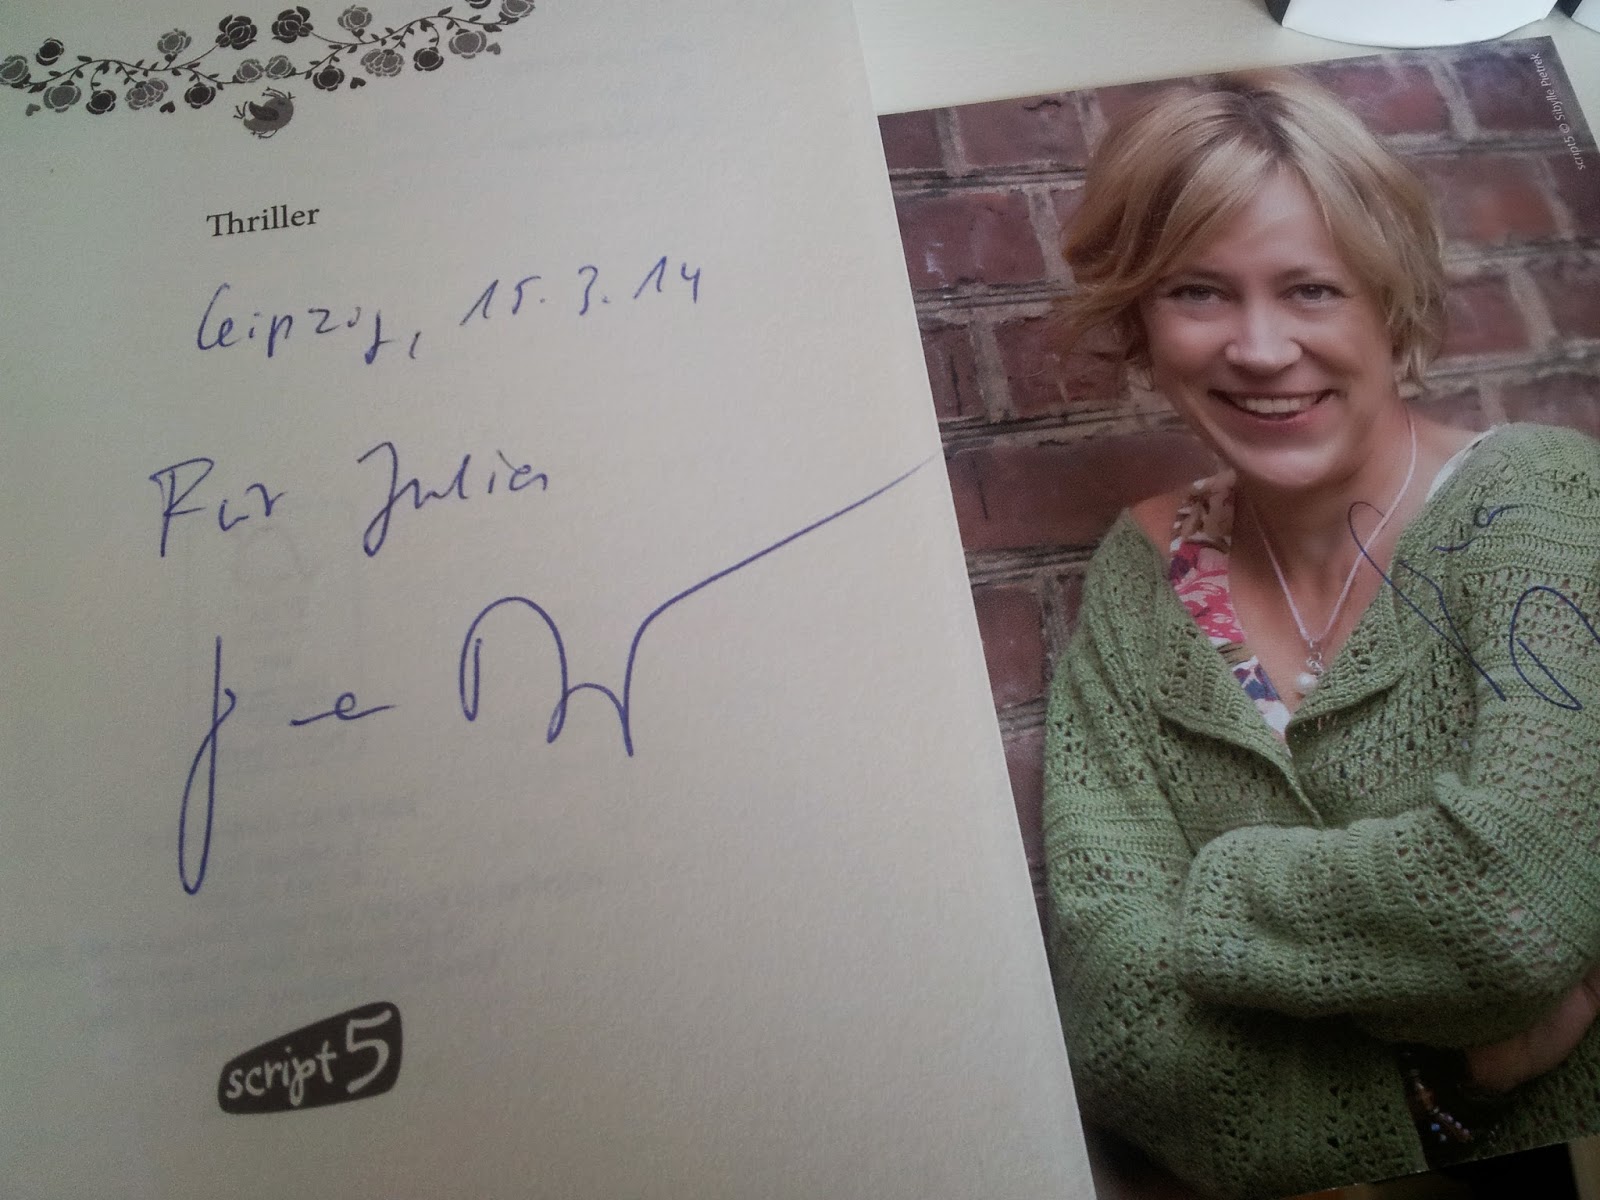 Thriller
Leipzig, 15.3.14
Für Julia
script5
script5 © Sibylle Pietrek